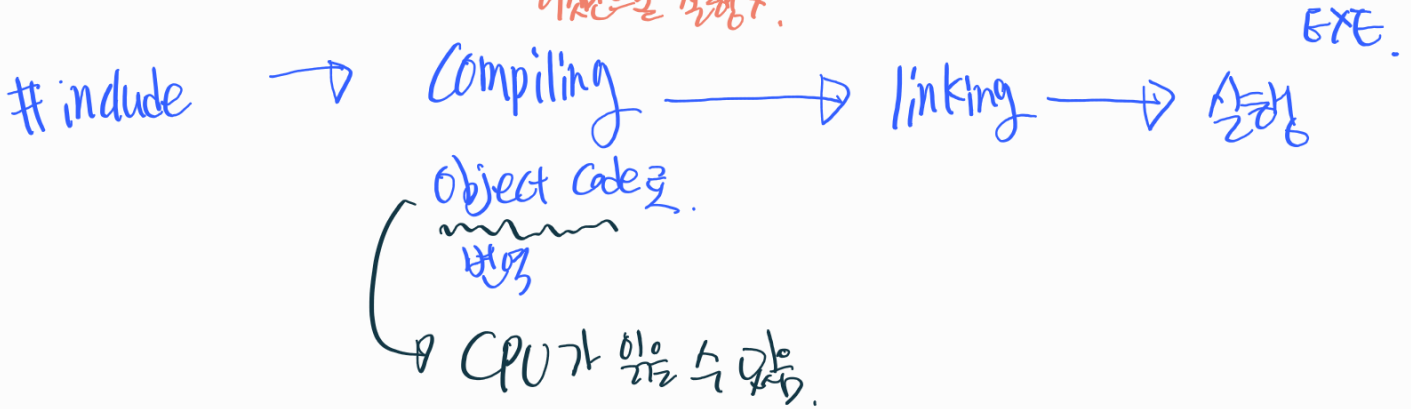 EXE.
#include → Compiling → linking → 실행
Object Code로.
번역
→ CPU가 읽을 수 있음.